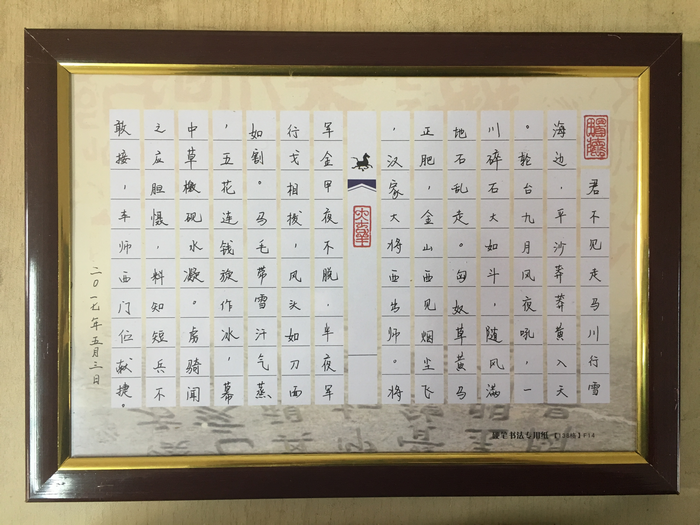 君不见走马川行雪
海边，平沙莽莽黄入天
。轮台九月风夜吼，一
川碎石大如斗，随风满
地石乱走。匈奴草黄马
正肥，金山西见烟尘飞
，汉家大将西出师。将
军金甲夜不脱，半夜军
行戈相拨，风头如刀面
如割。马毛带雪汗气蒸
，五花连钱旋作冰，幕
中草檄砚水凝。虏骑闻
之应胆慑，料知短兵不
敢接，车师西门伫献捷。
二〇一七年五月三日
硬笔书法专用纸